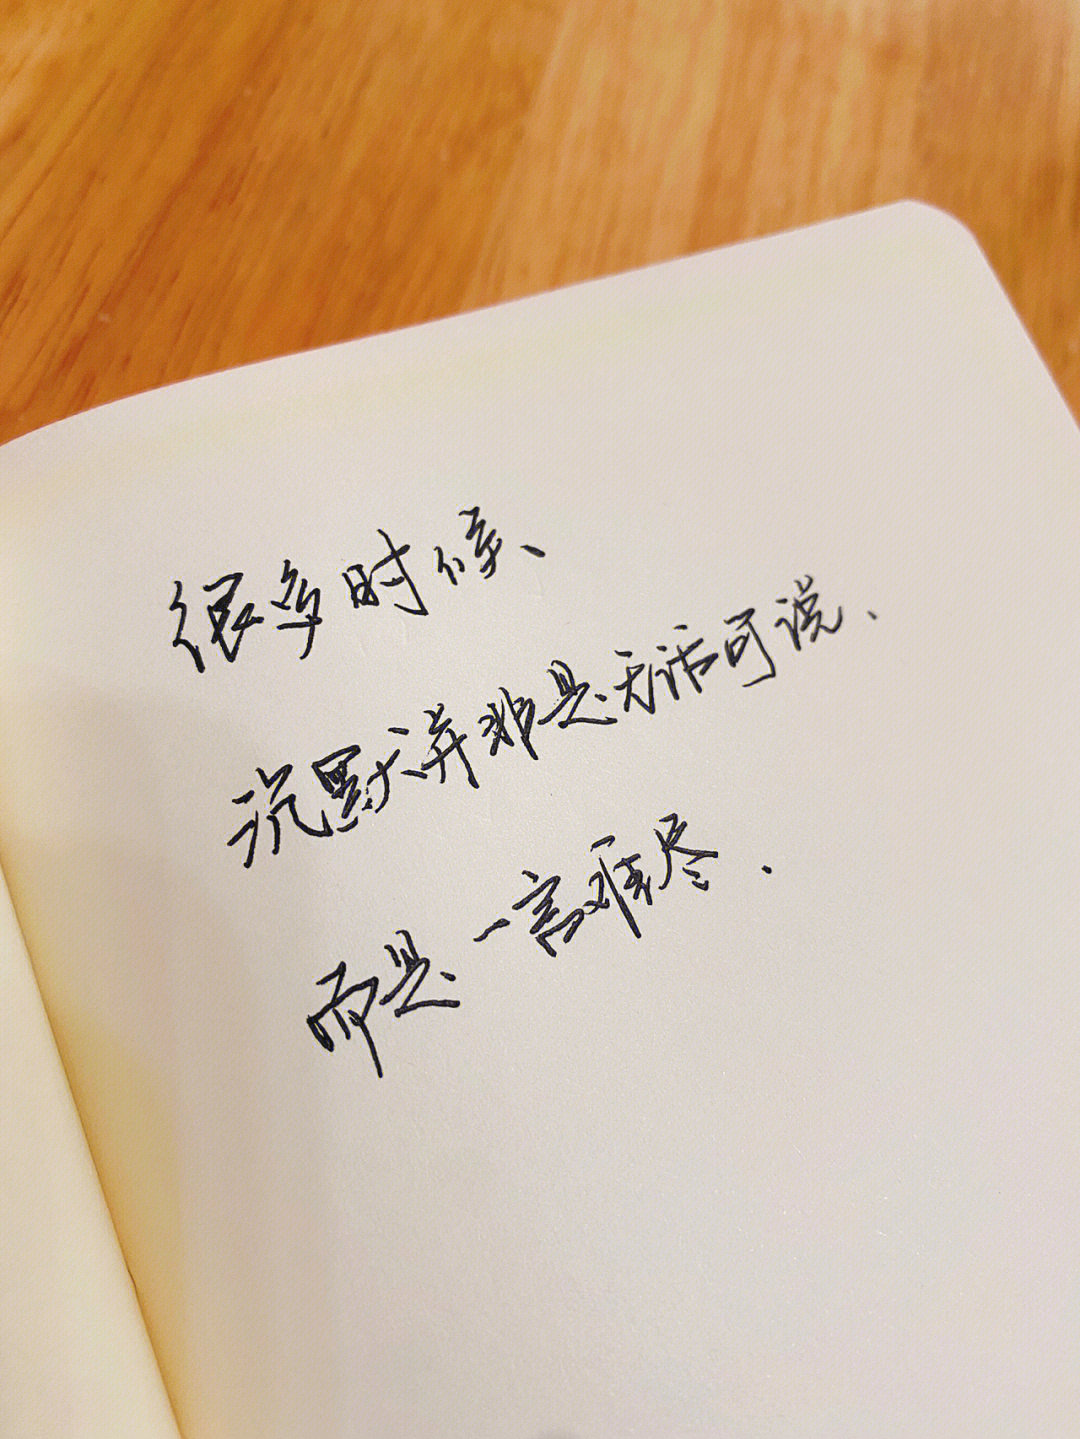 很多时候、
沉默并非是无话可说、
而是一言难尽.